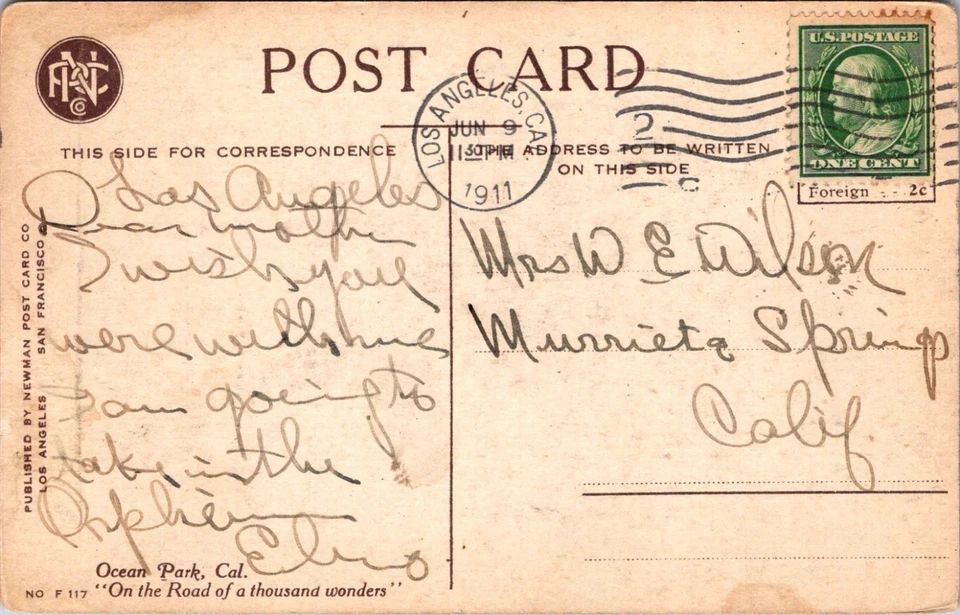 POST CARD
THIS SIDE FOR CORRESPONDENCE
THE ADDRESS TO BE WRITTEN
ON THIS SIDE
LOS ANGELES, CAL
JUN 9
1130PM
1911
U.S. POSTAGE
ONE CENT
Foreign 2c
Los Angeles
Dear mother
I wish you
were with me
I am going to
take in the
Orpheum
Mrs W E Wilson
Murrieta Springs
Calif.
PUBLISHED BY NEWMAN POST CARD CO
LOS ANGELES SAN FRANCISCO
Ocean Park, Cal.
NO F 117 "On the Road of a thousand wonders"